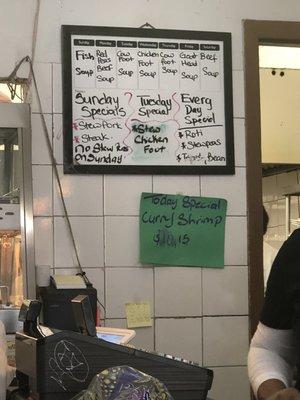 Sunday Monday Tuesday Wednesday Thursday Friday Saturday
Fish Soup
Red Peas Beef Soup
Cow Foot Soup
Chicken Foot Soup
Cow Foot Soup
Goat Head Soup
Beef Soup
Sunday Specials
$ Stew Pork
$ Steak
No Stew Peas
on Sunday
Tuesday Special
$ Stew
Chicken
Foot
Every
Day
Special
$ Roti
$ Stewpeas
Today Special
Curry Shrimp
15